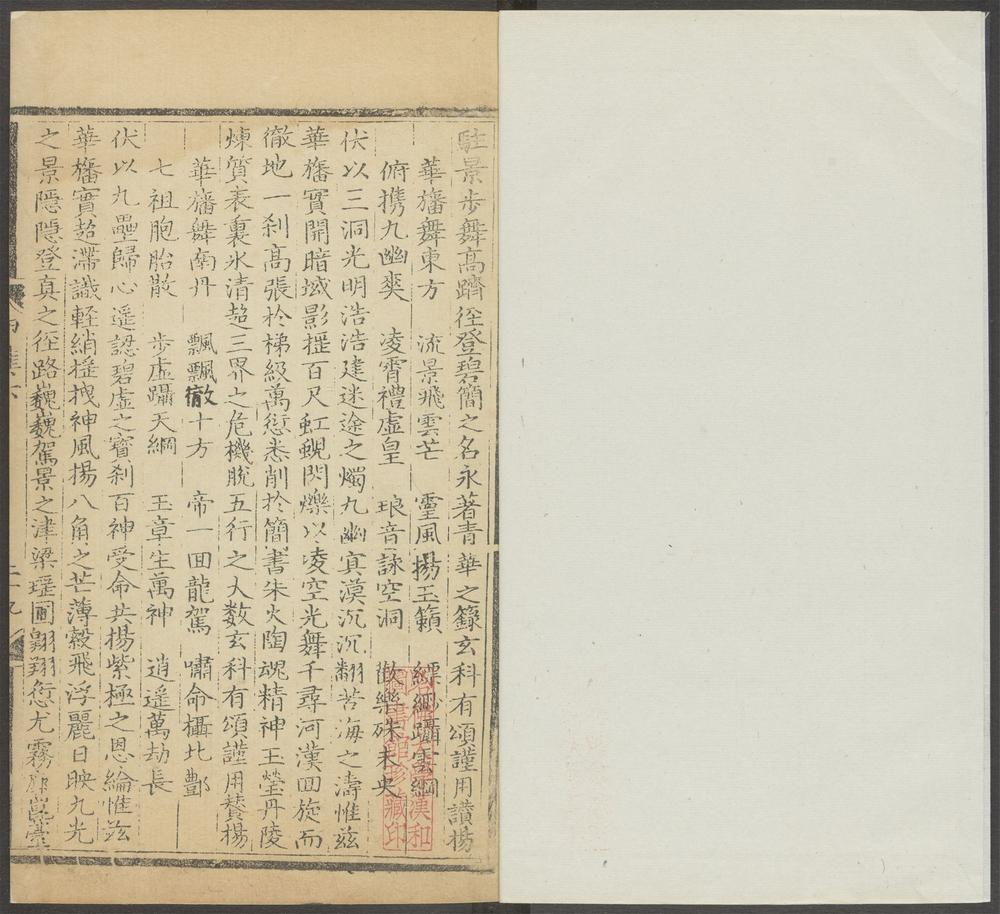 駐景步舞高躋徑登碧簡之名永著青華之籙玄科有頌謹用讚揚
華旛舞東方 流景飛雲芒 靈風揚玉籟 縹緲躡雲綱
俯携九幽爽 凌霄禮虛皇 琅音詠空洞 歡樂殊未央
伏以三洞光明浩浩建迷途之燭九幽真漠沉沉翻苦海之濤惟兹
華旛實開暗域影摇百尺虹蜺閃爍以凌空光舞千尋河漢回旋而
徹地一刹高張於梯級萬愆悉削於簡書朱火陶魂精神玉瑩丹陵
煉質表裏氷清超三界之危機脫五行之大数玄科有頌謹用賛揚
華旛舞南丹 飄飄徹十方 帝一回龍駕 嘯命攝北酆
七祖胞胎散 步虛躡天綱 玉章生萬神 逍遥萬劫長
伏以九壘歸心遥認碧虛之寳刹百神受命共揚紫極之恩綸惟兹
華旛實超滯識輕綃摇拽神風揚八角之芒薄縠飛浮麗日映九光
之景隱隱登真之徑路巍巍駕景之津梁瑶圃翱翔愆尤霧臺
二十九
哈佛大學漢和圖書館珍藏印